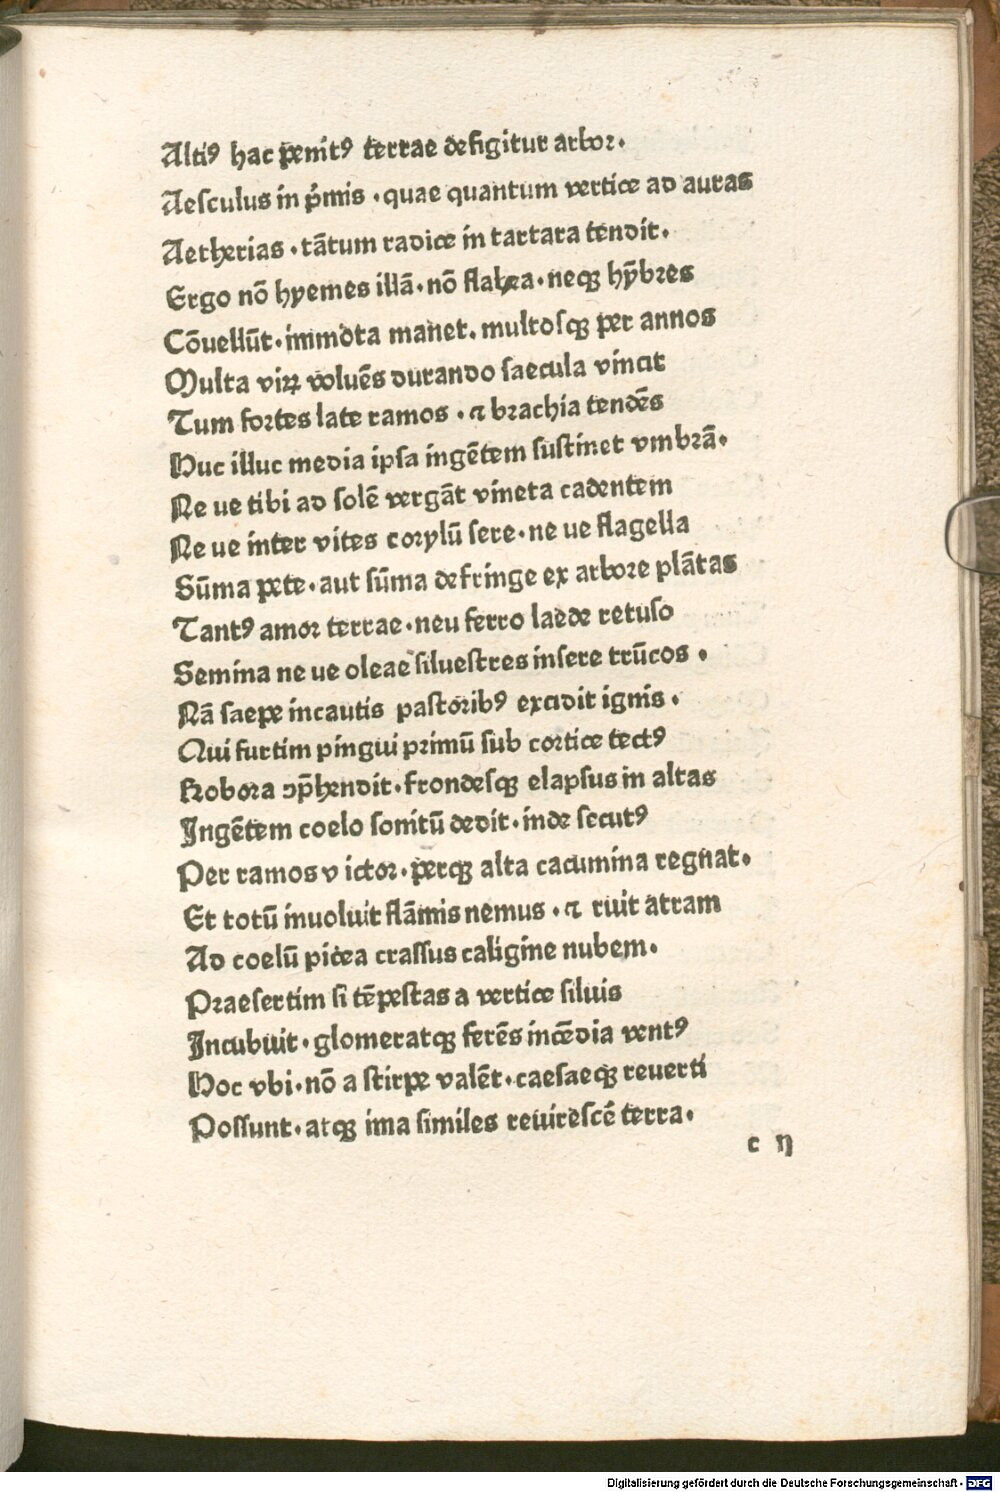 Altiꝰ hac penitꝰ terrae defigitur arbor.
Aesculus in p̄mis · quae quantum vertice ad auras
Aetherias · tātum radice in tartara tendit.
Ergo nō hyemes illā · nō flabra · neqꝫ hȳbres
Cōuellūt · immota manet. multosqꝫ per annos
Multa viꝝ voluēs durando saecula vincit
Tum fortes late ramos · ⁊ brachia tendēs
Huc illuc media ipsa ingētem sustinet vmbrā.
Ne ue tibi ad solē vergāt vineta cadentem
Ne ue inter vites corylū sere · ne ue flagella
Sūma pete · aut sūma defringe ex arbore plātas
Tantꝰ amor terrae · neu ferro laede retuso
Semina ne ue oleae siluestres insere trūcos .
Nā saepe incautis pastoribꝰ excidit ignis .
Qui furtim pingui primū sub cortice tectꝰ
Robora ↄp̄hendit · frondesqꝫ elapsus in altas
Ingētem coelo sonitū dedit · inde secutꝰ
Per ramos v ictor · perqꝫ alta cacumina regnat.
Et totū inuoluit flāmis nemus · ⁊ ruit atram
Ad coelū picea crassus caligine nubem.
Praesertim si tēpestas a vertice siluis
Incubuit · glomeratqꝫ ferēs incēdia ventꝰ
Hoc vbi · nō a stirpe valēt · caesaeqꝫ reuerti
Possunt · atqꝫ ima similes reuirescē terra.
c ij
Digitalisierung gefördert durch die Deutsche Forschungsgemeinschaft - DFG